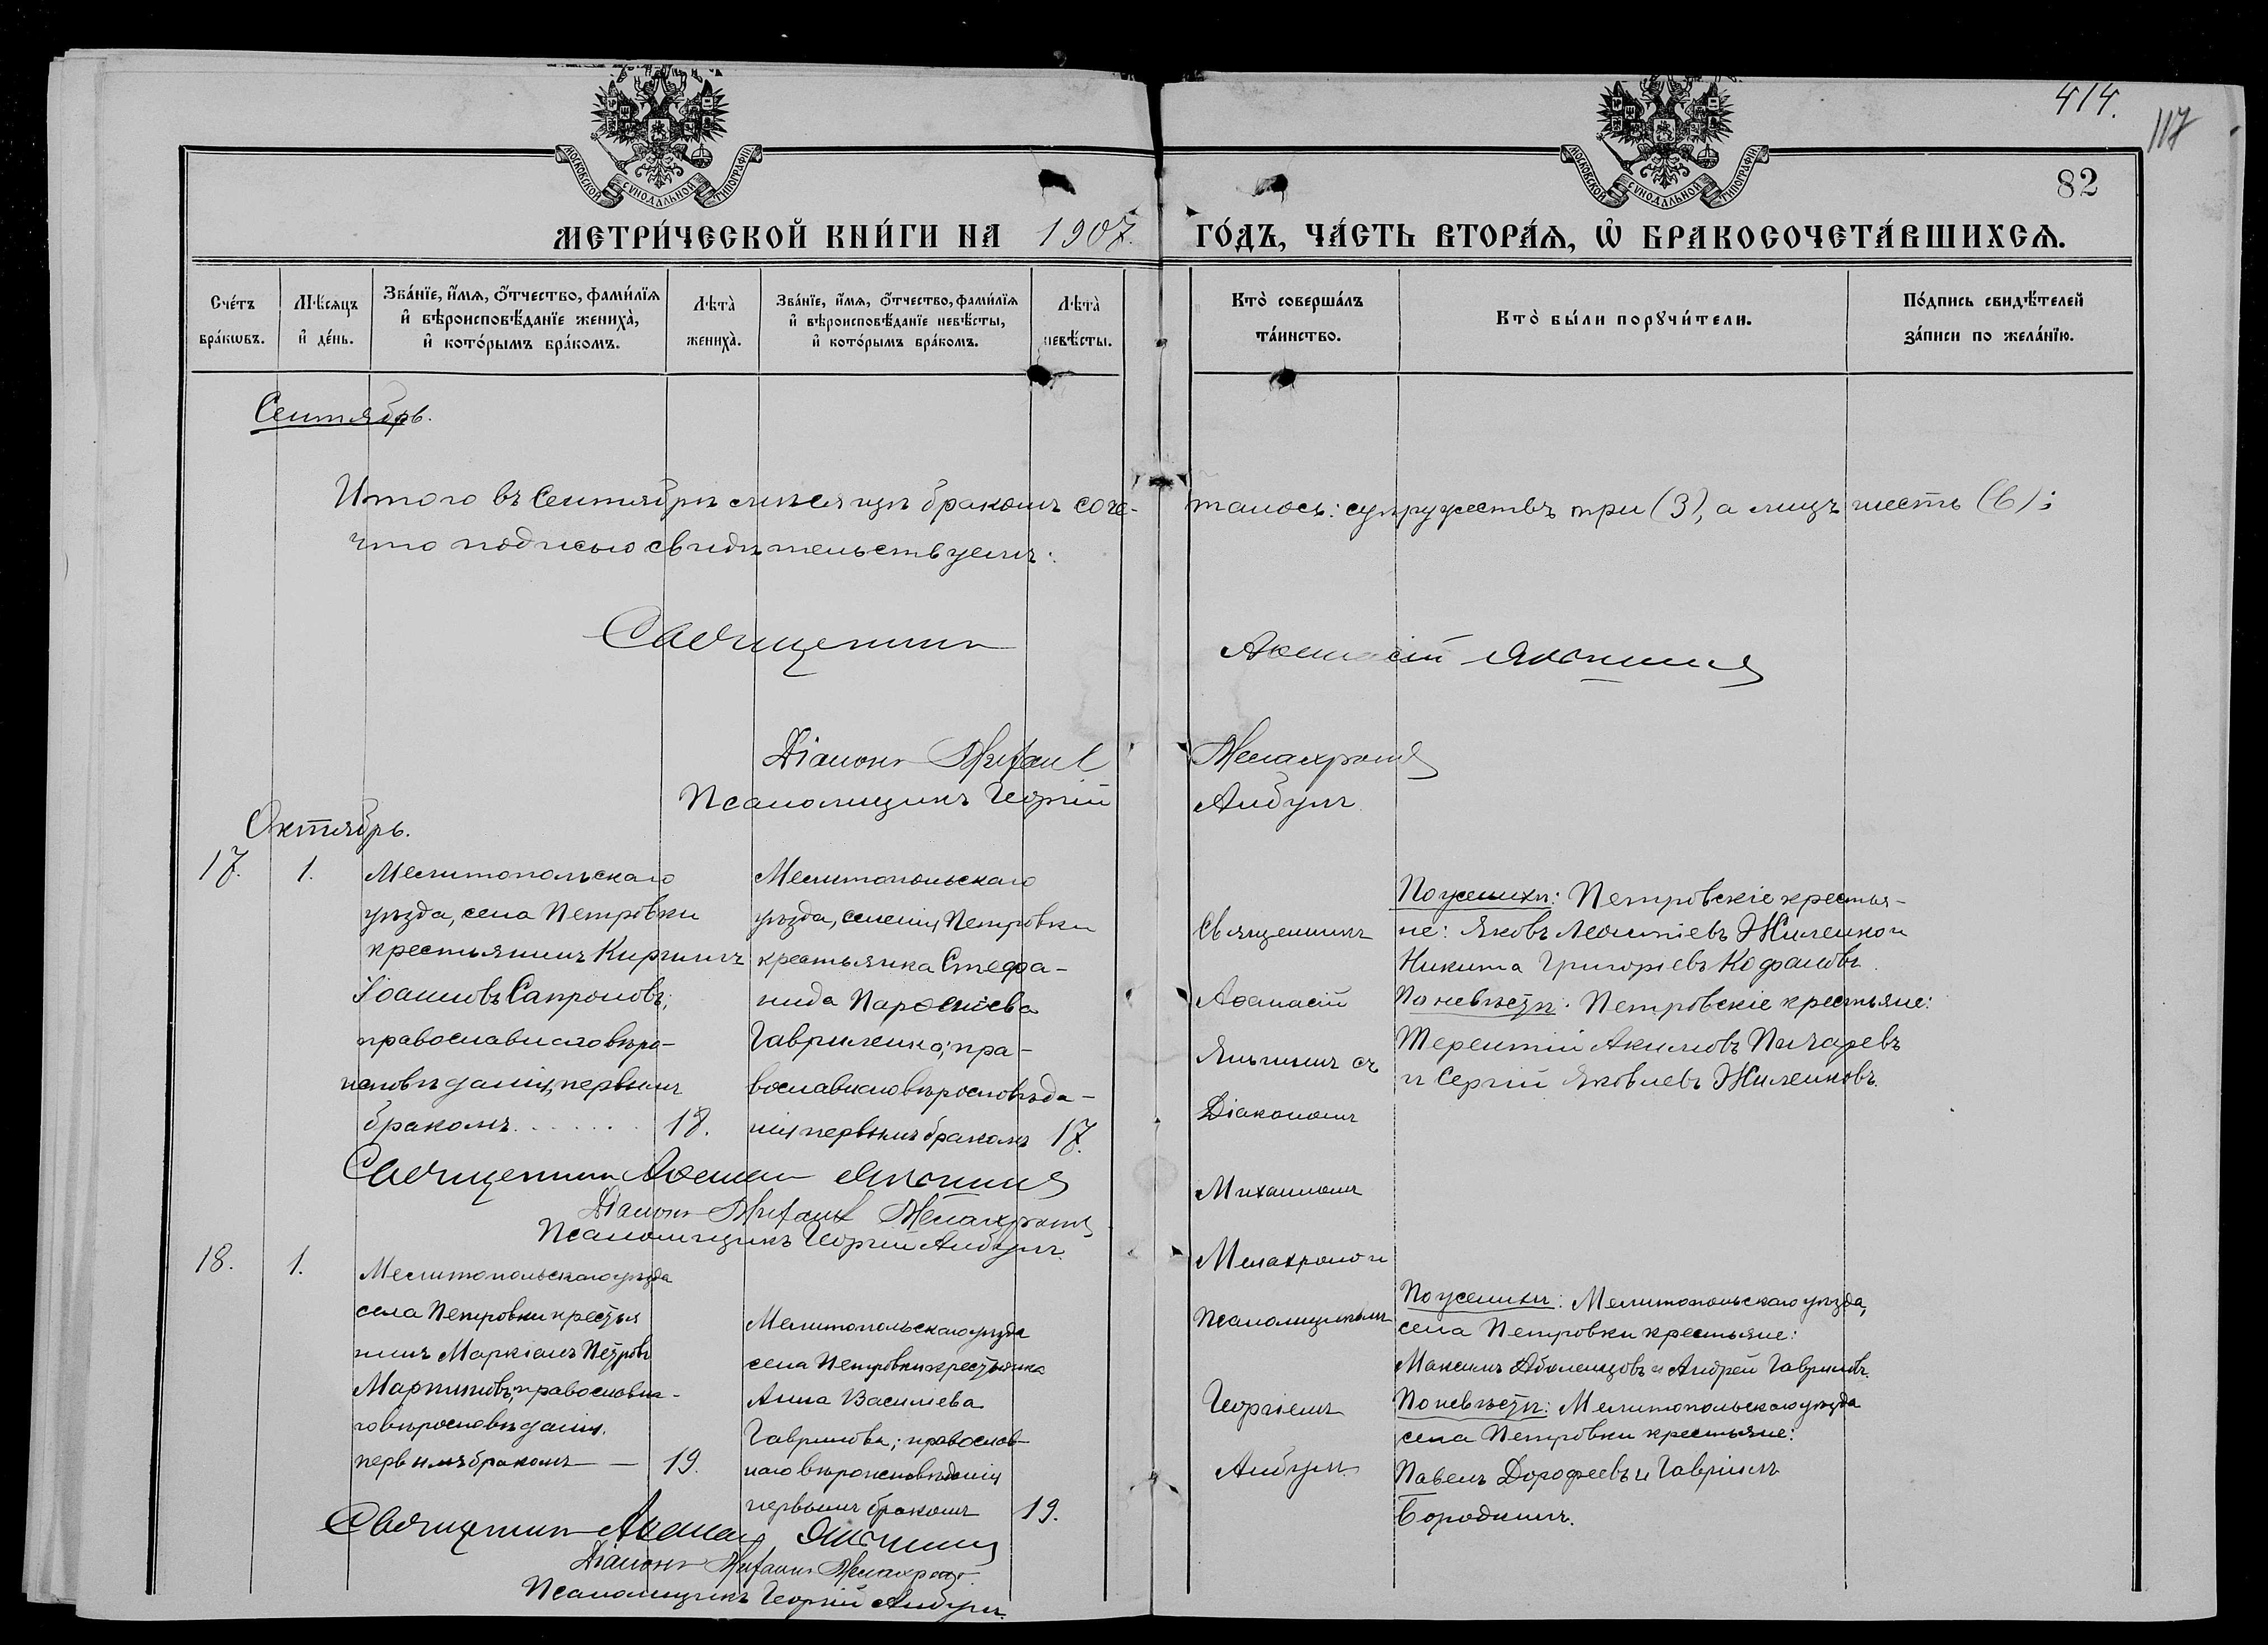 414.
117
МОСКОВСКОЙ СУНОДАЛЬНОЙ ТИПОГРАФІИ
МОСКОВСКОЙ СУНОДАЛЬНОЙ ТИПОГРАФІИ
82
МЕТРИ́ЧЕСКОЙ КНИ́ГИ НА 1907. ГО́ДЪ, ЧА́СТЬ ВТОРА́Ѧ, Ѡ БРАКОСОЧЕТА́ВШИХСѦ.
Сче́тъ бра́кωвъ.
Мѣ́сяцъ и де́нь.
Зва́нїе, и́мѧ, о́тчество, фами́лїѧ и вѣроисповѣ́данїе жениха̀, и кото́рымъ бра́комъ.
Лѣта̀ жениха̀.
Зва́нїе, и́мѧ, о́тчество, фами́лїѧ и вѣроисповѣ́данїе невѣ́сты, и кото́рымъ бра́комъ.
Лѣта̀ невѣ́сты.
Кто̀ соверша́лъ та́инство.
Кто̀ бы́ли порꙋчи́тели.
По́дпись свидѣ́телей за́писи по жела́нїю.
Сентябрь.
Итого въ Сентябрѣ мѣсяцѣ бракомъ соче-
талось: супружествъ три (3), а лицъ шесть (6);
что подписью свидѣтельствуемъ:
Священникъ Аѳанасій
Діаконъ Михаилъ Мелахроновъ
Псаломщикъ Георгій Анбулъ
Октябрь.
17. 1.
Мелитопольскаго
уѣзда, села Петровки
крестьянинъ Кириллъ
Іоанновъ Сапроновъ;
православнаго вѣро-
исповѣданія, первымъ
бракомъ. . . . . . . 18.
Мелитопольскаго
уѣзда, селенія Петровки
крестьянка Стефа-
нида Парѳеніева
Гавриленко; пра-
вославнаго вѣроисповѣда-
нія первымъ бракомъ 17.
Священникъ
Аѳанасій
съ
Діакономъ
Михаиломъ
Мелахроно и
Псаломщикомъ
Георгіемъ
Анбулъ
По женихѣ: Петровскіе крестья-
не: Яковъ Леонтіевъ Жиленко и
Никита Григоріевъ Кофановъ.
По невѣстѣ: Петровскіе крестьяне:
Терентій Акимовъ Пичаревъ
и Сергій Яковлевъ Жиленковъ.
Священникъ Аѳанасій
Діаконъ Михаилъ Мелахроновъ
Псаломщикъ Георгій Анбулъ.
18. 1.
Мелитопольскаго уѣзда
села Петровки крестья
нинъ Маркіанъ Петровъ
Мартиновъ, православна-
го вѣроисповѣданія.
первымъ бракомъ — 19.
Мелитопольскаго уѣзда
села Петровки крестьянка
Анна Василіева
Гаврилова; православ-
наго вѣроисповѣданія
первымъ бракомъ 19.
По женихѣ: Мелитопольскаго уѣзда,
села Петровки крестьяне:
Максимъ Аболенцовъ и Андрей Гавриловъ.
По невѣстѣ: Мелитопольскаго уѣзда
села Петровки крестьяне:
Павелъ Дорофеевъ и Гавріилъ
Бородинъ.
Священникъ Аѳанасій
Діаконъ Михаилъ Мелахроно.
Псаломщикъ Георгій Анбулъ.